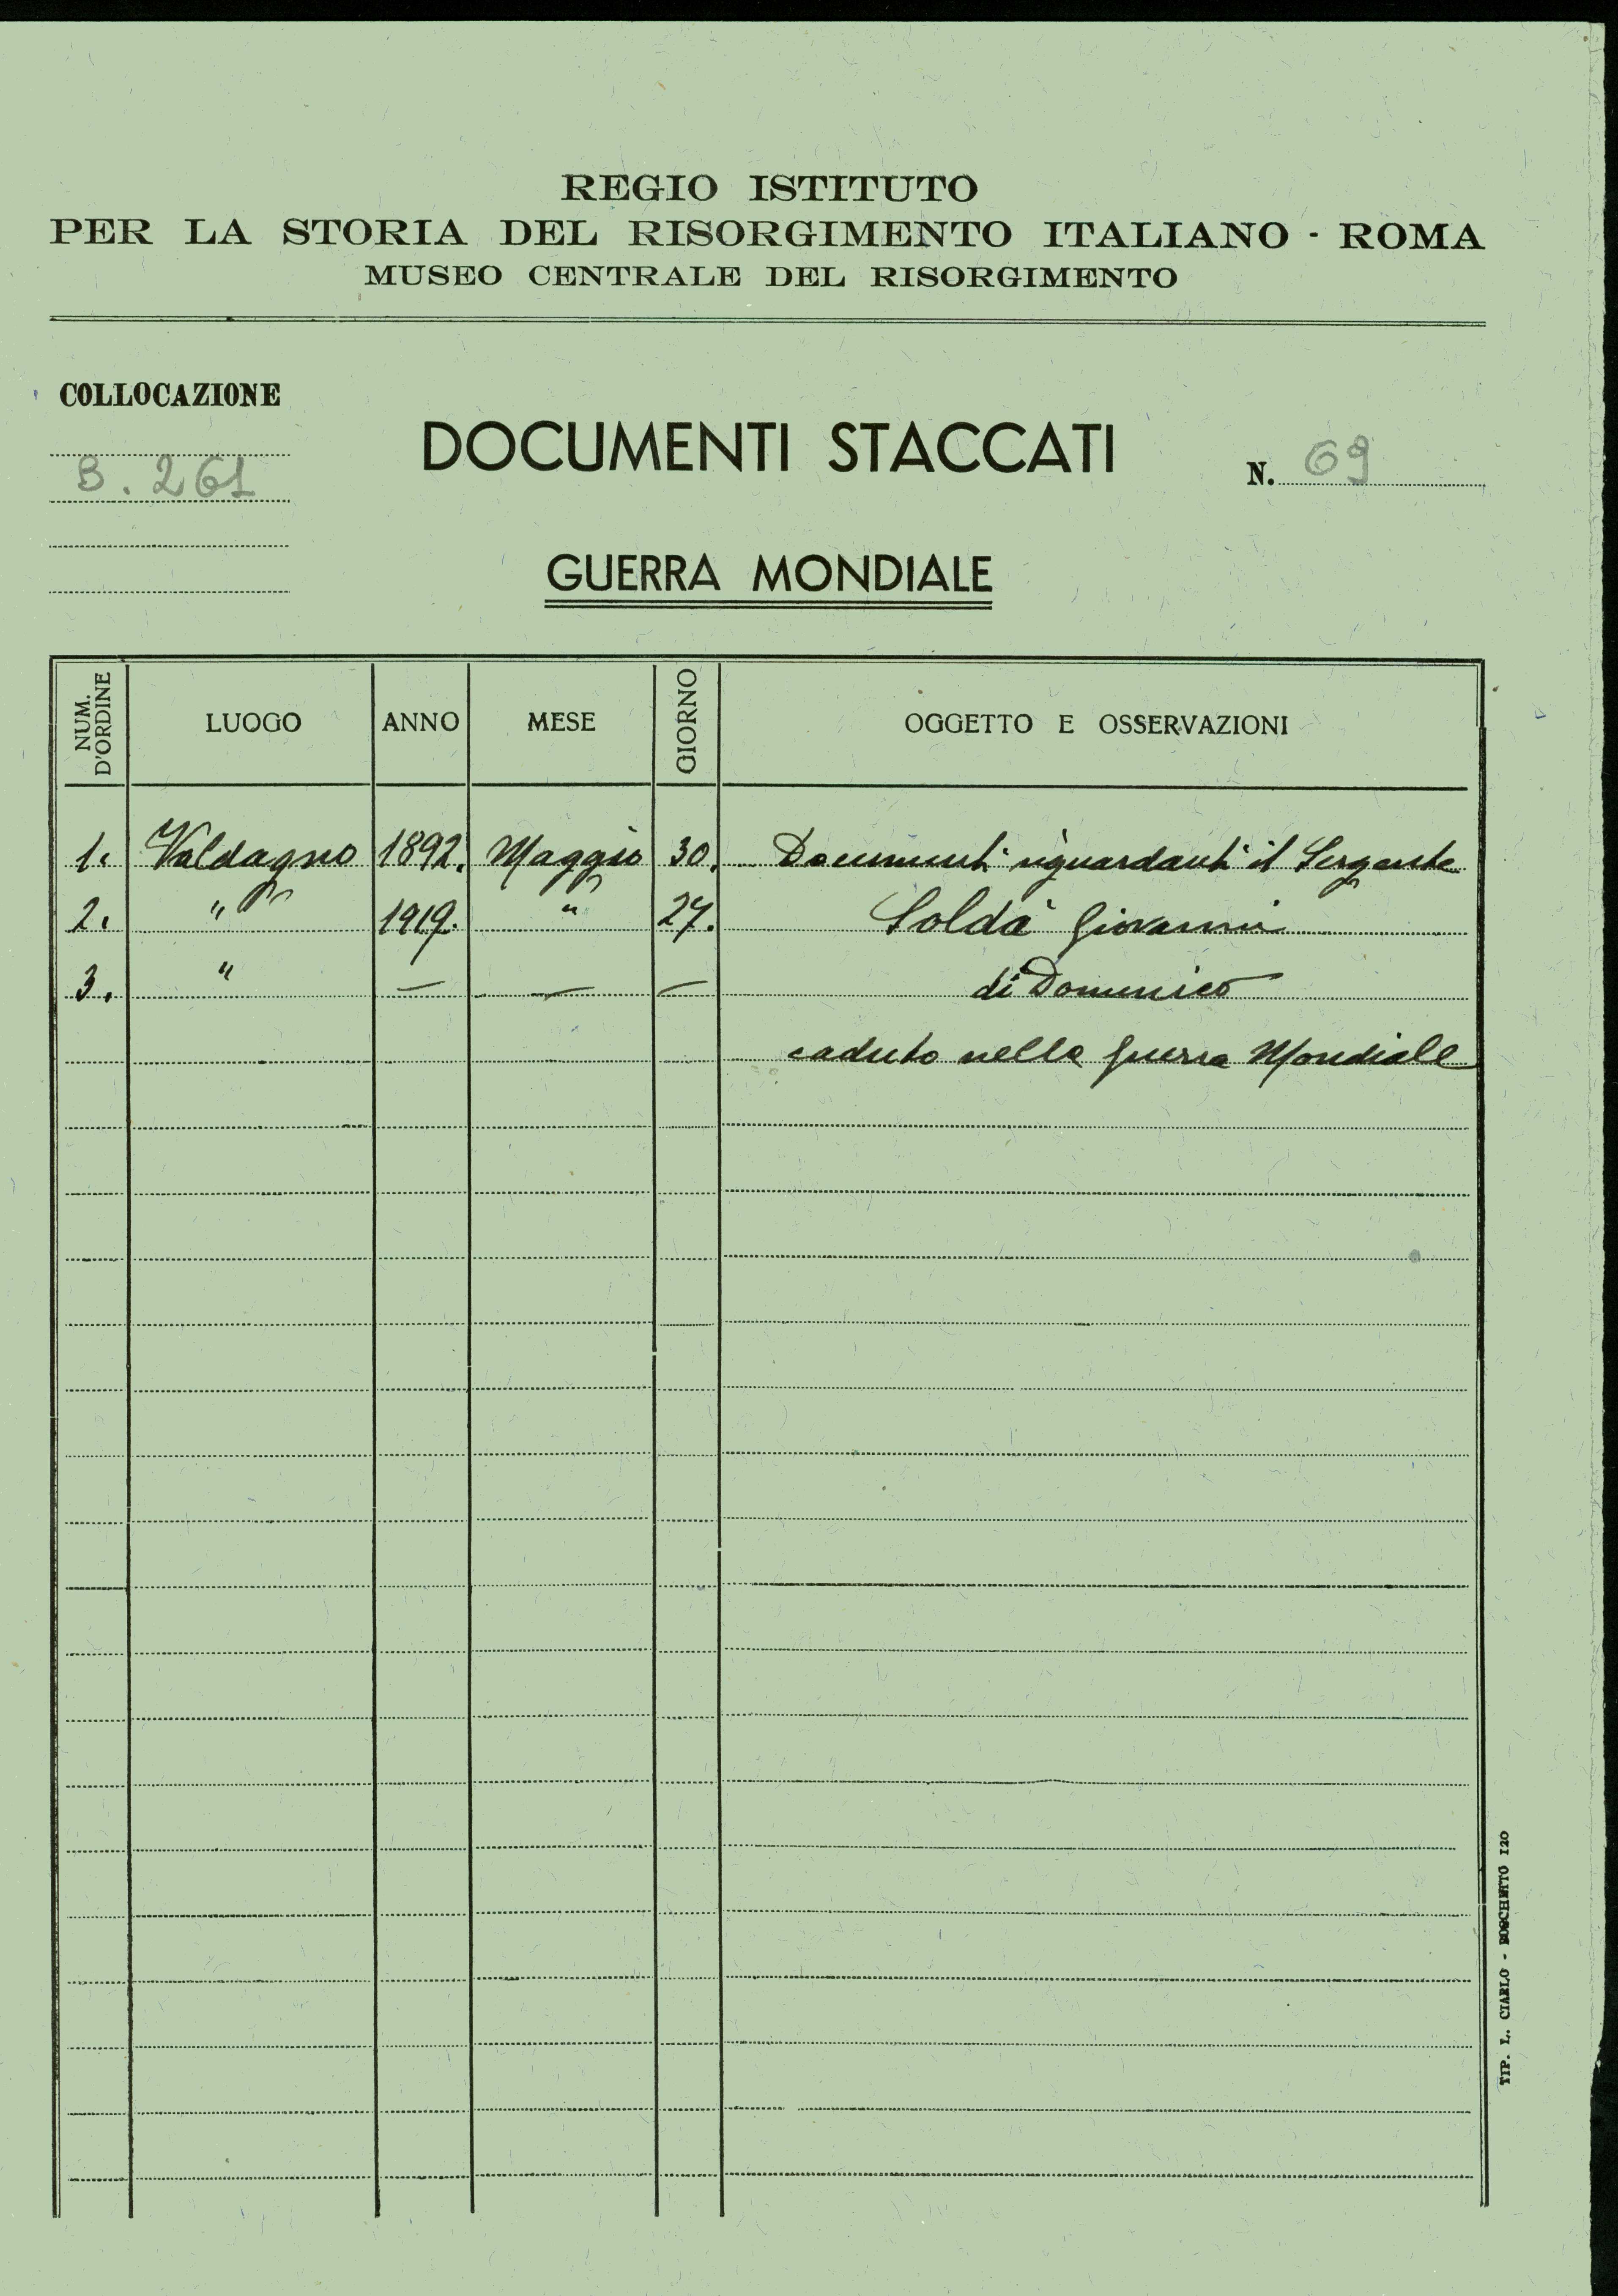 REGIO ISTITUTO
PER LA STORIA DEL RISORGIMENTO ITALIANO - ROMA
MUSEO CENTRALE DEL RISORGIMENTO
COLLOCAZIONE
B. 261
DOCUMENTI STACCATI
N. 69
GUERRA MONDIALE
NUM. D'ORDINE LUOGO ANNO MESE GIORNO OGGETTO E OSSERVAZIONI
1. Valdagno 1892. Maggio 30. Documenti riguardanti il Sergente
2. " 1919. " 27. Soldà Giovanni
3. " — — — di Domenico
caduto nella guerra Mondiale
TIP. L. CIARLO - BOSCHETTO 120